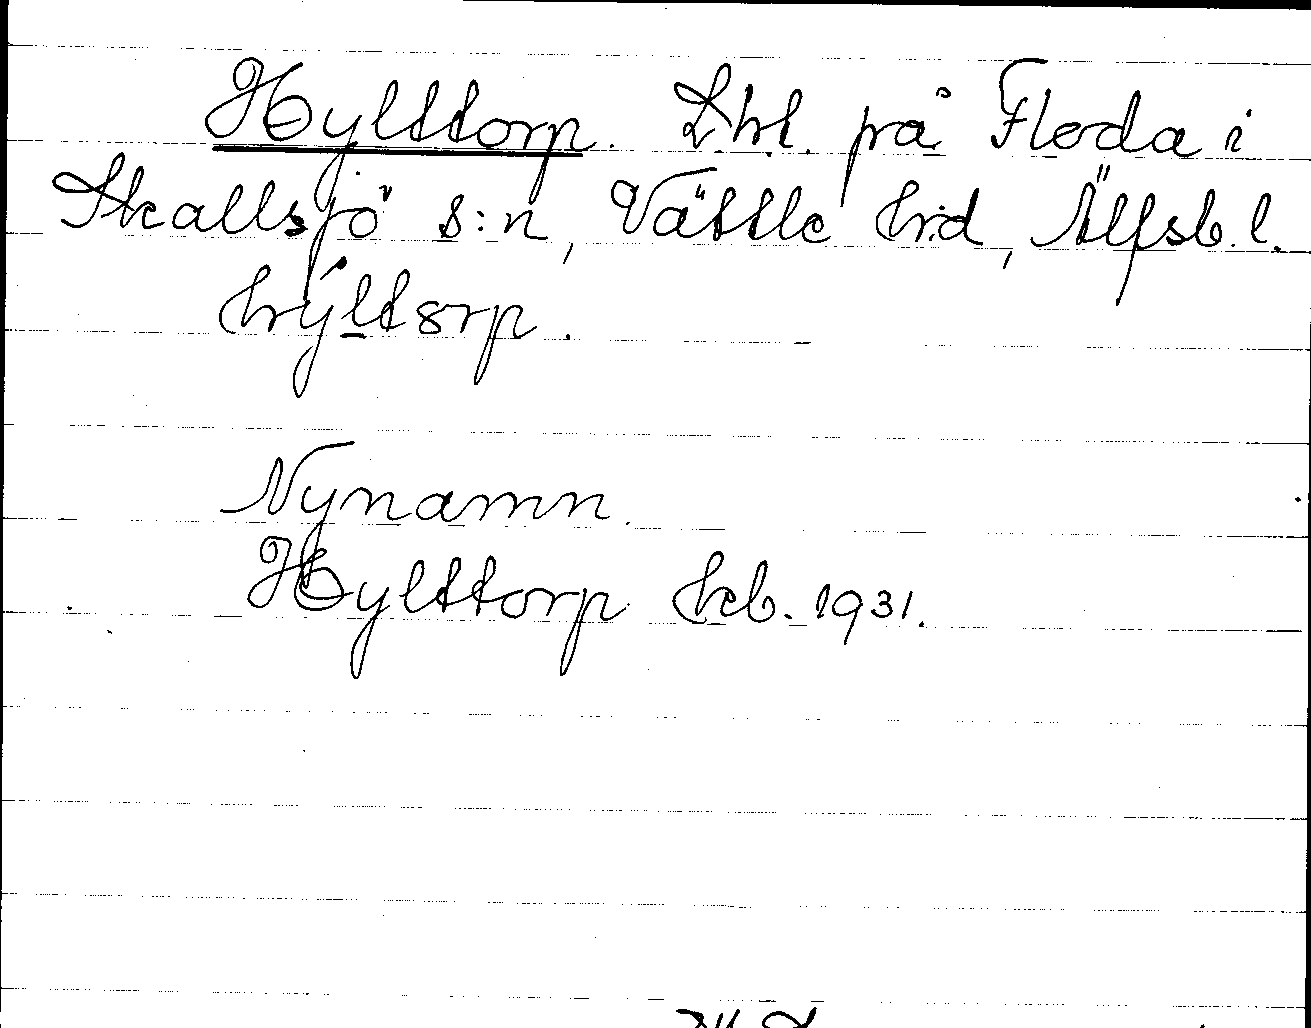 Hylttorp. Lht. på Floda i
Skallsjö s:n, Vättle hd, Älfsb. l.
hýltorp.
Nynamn.
Hylttorp hcb. 1931.